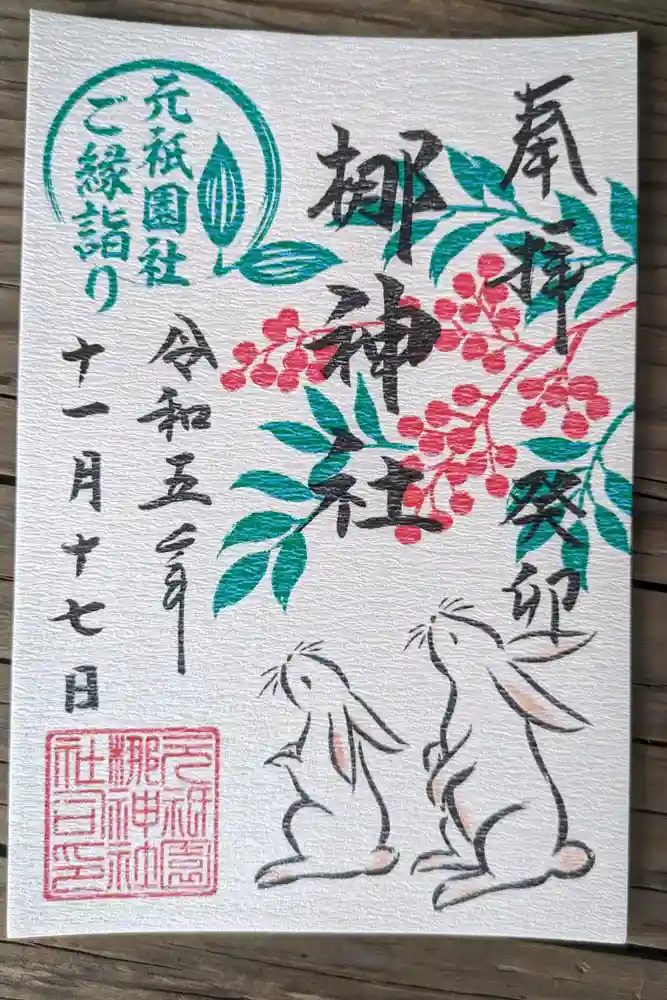 奉拝 癸卯
梛神社
元祇園社
ご縁詣り
令和五年
十一月十七日
元祇園
梛神社
社印